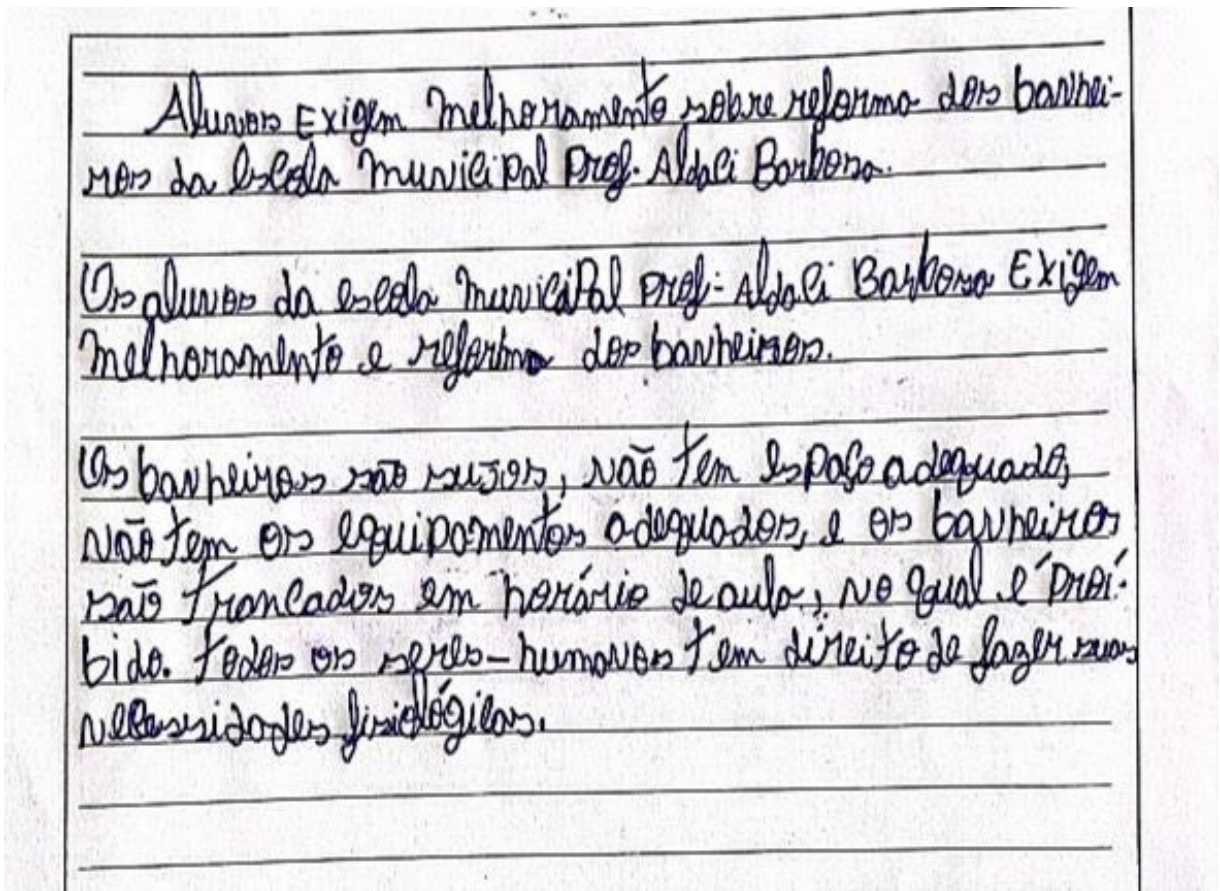 Alunos Exigem melhoramento sobre reforma dos banhei-
ros da escola municipal Prof. Aldaci Barbosa.
Os alunos da escola municipal Prof. Aldaci Barbosa Exigem
melhoramento e reforma dos banheiros.
Os banheiros são sujos, não tem espaço adequado,
não tem os equipamentos adequados, e os banheiros
são trancados em horário de aula, no qual é proí-
bido. todos os seres-humanos tem direito de fazer suas
necessidades fisiológicas.